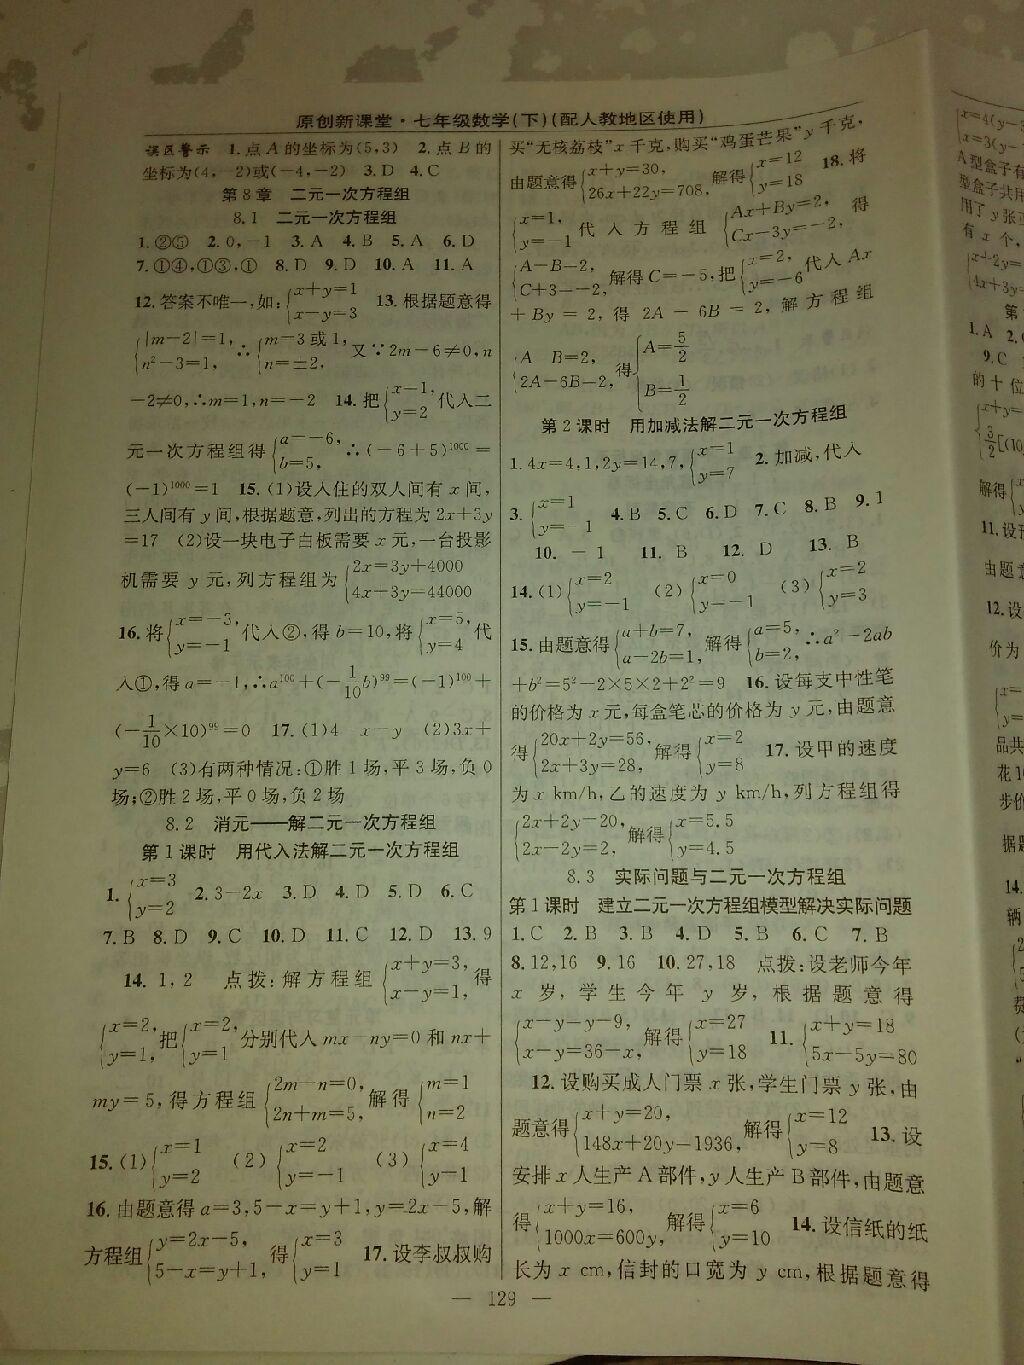 原创新课堂·七年级数学(下)(配人教地区使用)
误区警示 1.点A的坐标为(5,3) 2.点B的
坐标为(4,-2)或(-4,-2) 3.D 4.C
第8章 二元一次方程组
8.1 二元一次方程组
1.②⑤ 2.0,-1 3.A 4.B 5.A 6.D
7.①④,①③,① 8.D 9.D 10.A 11.A
12.答案不唯一,如:{x+y=1 x-y=3 13.根据题意得
{|m-2|=1, n²-3=1, ∴{m=3或1, n=±2, 又∵2m-6≠0,n
-2≠0,∴m=1,n=-2 14.把{x=1, y=2代入二
元一次方程组得{a=-6, b=5, ∴(-6+5)¹⁰⁰⁰=
(-1)¹⁰⁰⁰=1 15.(1)设入住的双人间有x间,
三人间有y间,根据题意,列出的方程为2x+3y
=17 (2)设一块电子白板需要x元,一台投影
机需要y元,列方程组为{2x=3y+4000 4x-3y=44000
16.将{x=-3, y=-1代入②,得b=10,将{x=5, y=4代
入①,得a=-1,∴a¹⁰⁰+(-1/10 b)⁹⁹=(-1)¹⁰⁰+
(-1/10×10)⁹⁹=0 17.(1)4 x-y (2)3x+
y=6 (3)有两种情况:①胜1场,平3场,负0
场;②胜2场,平0场,负2场
8.2 消元——解二元一次方程组
第1课时 用代入法解二元一次方程组
1.{x=3 y=2 2.3-2x 3.D 4.D 5.D 6.C
7.B 8.D 9.C 10.D 11.C 12.D 13.9
14.1,2 点拨:解方程组{x+y=3, x-y=1, 得
{x=2, y=1, 把{x=2, y=1分别代入mx-ny=0和nx+
my=5,得方程组{2m-n=0, 2n+m=5, 解得{m=1 n=2
15.(1){x=1 y=2 (2){x=2 y=-1 (3){x=4 y=1
16.由题意得a=3,5-x=y+1,y=2x-5,解
方程组{y=2x-5, 5-x=y+1, 得{x=3 y=1 17.设李叔叔购
买“无核荔枝”x千克,购买“鸡蛋芒果”y千克,
由题意得{x+y=30, 26x+22y=708, 解得{x=12 y=18 18.将
{x=1, y=-1代入方程组{Ax+By=2, Cx-3y=-2, 得
{A-B=2, C+3=-2, 解得C=-5,把{x=2, y=-6代入Ax
+By=2,得2A-6B=2,解方程组
{A-B=2, 2A-6B=2, 得{A=5/2 B=1/2
第2课时 用加减法解二元一次方程组
1.4x=4,1,2y=14,7,{x=1 y=7 2.加减,代入
3.{x=1 y=-1 4.B 5.C 6.D 7.C 8.B 9.1
10.-1 11.B 12.D 13.B
14.(1){x=2 y=-1 (2){x=0 y=-1 (3){x=2 y=3
15.由题意得{a+b=7, a-2b=1, 解得{a=5, b=2, ∴a²-2ab
+b²=5²-2×5×2+2²=9 16.设每支中性笔
的价格为x元,每盒笔芯的价格为y元,由题意
得{20x+2y=56, 2x+3y=28, 解得{x=2 y=8 17.设甲的速度
为x km/h,乙的速度为y km/h,列方程组得
{2x+2y=20, 2x-2y=2, 解得{x=5.5 y=4.5
8.3 实际问题与二元一次方程组
第1课时 建立二元一次方程组模型解决实际问题
1.C 2.B 3.B 4.D 5.B 6.C 7.B
8.12,16 9.16 10.27,18 点拨:设老师今年
x岁,学生今年y岁,根据题意得
{x-y=y-9, x-y=36-x, 解得{x=27 y=18 11.{x+y=18 5x-5y=80
12.设购买成人门票x张,学生门票y张,由
题意得{x+y=20, 148x+20y=1936, 解得{x=12 y=8 13.设
安排x人生产A部件,y人生产B部件,由题意
得{x+y=16, 1000x=600y, 解得{x=6 y=10 14.设信纸的纸
长为x cm,信封的口宽为y cm,根据题意得
— 129 —
A型盒子有
型盒子共用
用了y张正
有x个,
1.A 2.
9.C
的十位
解得
11.设
由题意
12.设
价为
品共
花10
步价
据题
14.
辆
费